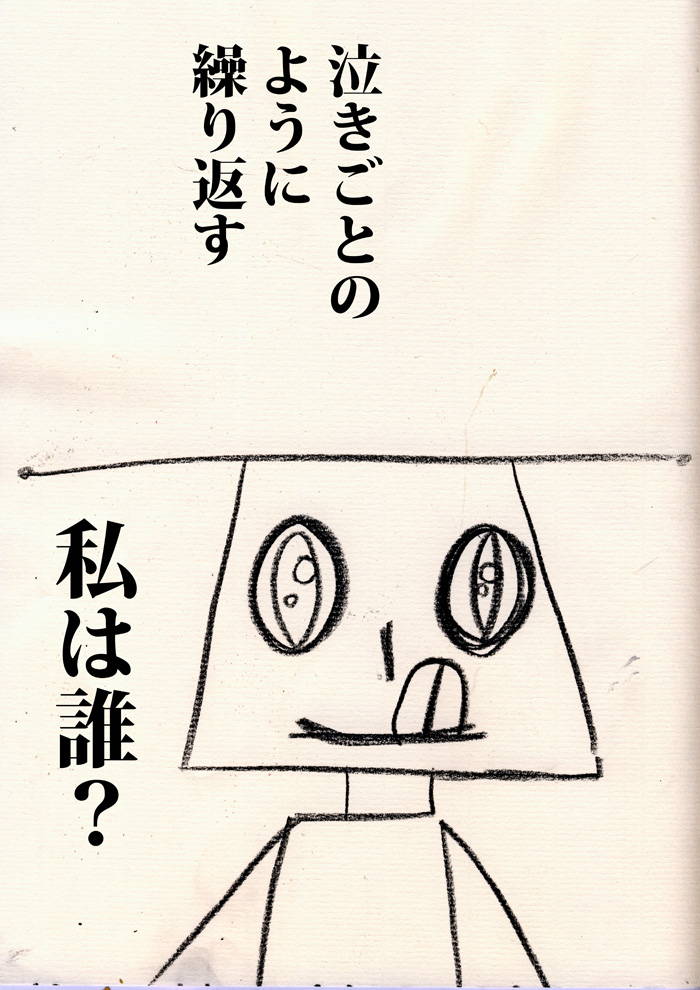 泣きごとの
ように
繰り返す
私は誰？